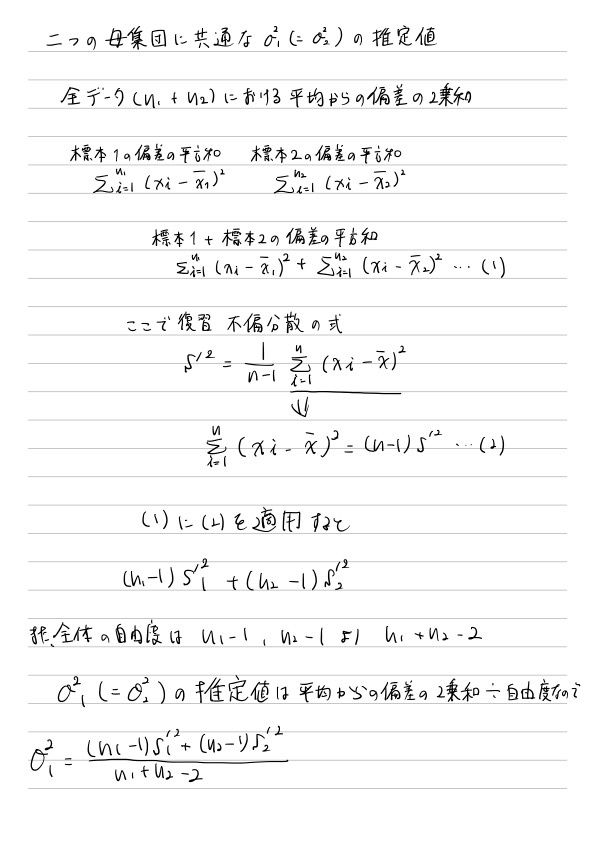 二つの母集団に共通な σ²₁(=σ²₂) の推定値
全データ(n₁+n₂)における平均からの偏差の2乗和
標本1の偏差の平方和 標本2の偏差の平方和
Σⁿ¹ᵢ₌₁ (xi − x̄₁)² Σⁿ²ᵢ₌₁ (xi − x̄₂)²
標本1+標本2の偏差の平方和
Σⁿ¹ᵢ₌₁ (xi − x̄₁)² + Σⁿ²ᵢ₌₁ (xi − x̄₂)² … (1)
ここで復習 不偏分散の式
S'² = 1/(n−1) Σⁿᵢ₌₁ (xi − x̄)²
⇓
Σⁿᵢ₌₁ (xi − x̄)² = (n−1) S'² … (2)
(1)に(2)を適用すると
(n₁−1) S'²₁ + (n₂−1) S'²₂
また、全体の自由度は n₁−1, n₂−1 より n₁+n₂−2
σ²₁ (=σ²₂) の推定値は平均からの偏差の2乗和÷自由度なので
σ²₁ = ((n₁−1)S'²₁ + (n₂−1)S'²₂)/(n₁+n₂−2)